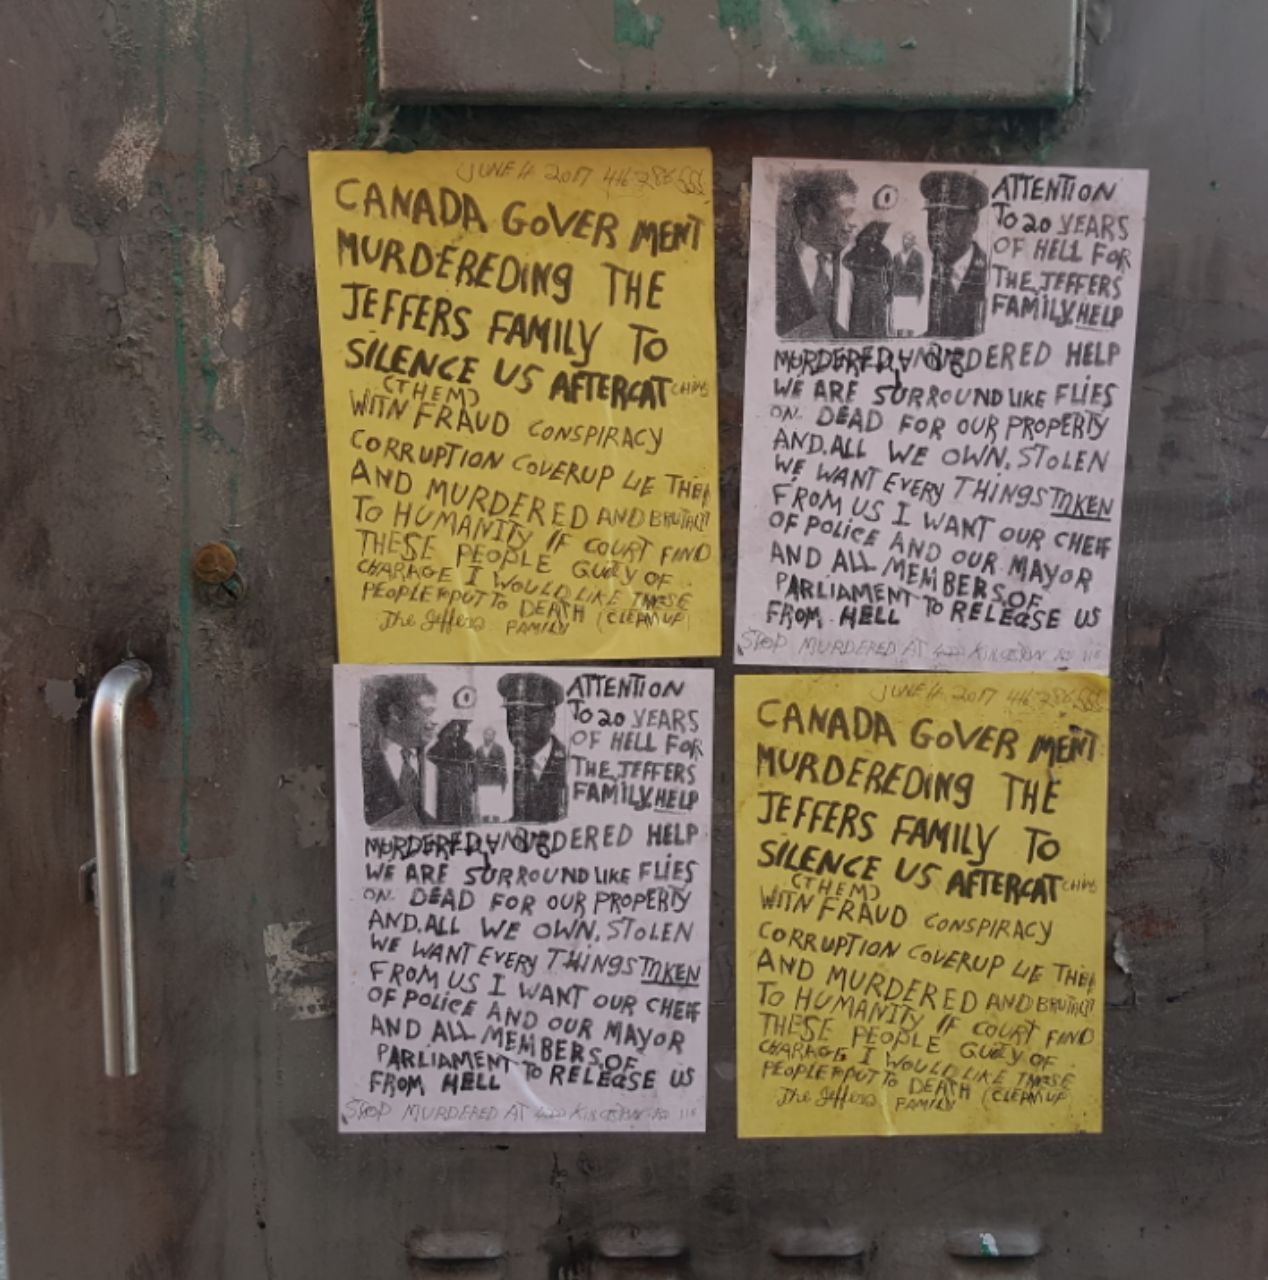 JUNE 4 2017 416 286
CANADA GOVERMENT
MURDEREDING THE
JEFFERS FAMILY TO
SILENCE US AFTERCAT
(THEM)
WITN FRAUD CONSPIRACY
CORRUPTION COVERUP LIE
AND MURDERED AND
TO HUMANITY IF COURT FIND
THESE PEOPLE GUILTY OF
CHARAGE I WOULD LIKE THESE
PEOPLE PUT TO DEATH (CLEAN UP
The Jeffers FAMILY
ATTENTION
TO 20 YEARS
OF HELL FOR
THE JEFFERS
FAMILY HELP
MURDERED HELP
WE ARE SURROUND LIKE FLIES
ON DEAD FOR OUR PROPERTY
AND. ALL WE OWN. STOLEN
WE WANT EVERY THINGS TAKEN
FROM US I WANT OUR CHEIF
OF POLICE AND OUR MAYOR
AND ALL MEMBERS OF
PARLIAMENT TO RELEASE US
FROM HELL
STOP MURDERED AT KINGSTON RD
ATTENTION
TO 20 YEARS
OF HELL FOR
THE JEFFERS
FAMILY HELP
MURDERED HELP
WE ARE SURROUND LIKE FLIES
ON DEAD FOR OUR PROPERTY
AND. ALL WE OWN. STOLEN
WE WANT EVERY THINGS TAKEN
FROM US I WANT OUR CHEIF
OF POLICE AND OUR MAYOR
AND ALL MEMBERS OF
PARLIAMENT TO RELEASE US
FROM HELL
STOP MURDERED AT KINGSTON RD
JUNE 4 2017 416 286
CANADA GOVERMENT
MURDEREDING THE
JEFFERS FAMILY TO
SILENCE US AFTERCAT
(THEM)
WITN FRAUD CONSPIRACY
CORRUPTION COVERUP LIE
AND MURDERED AND
TO HUMANITY IF COURT FIND
THESE PEOPLE GUILTY OF
CHARAGE I WOULD LIKE THESE
PEOPLE PUT TO DEATH (CLEAN UP
The Jeffers FAMILY